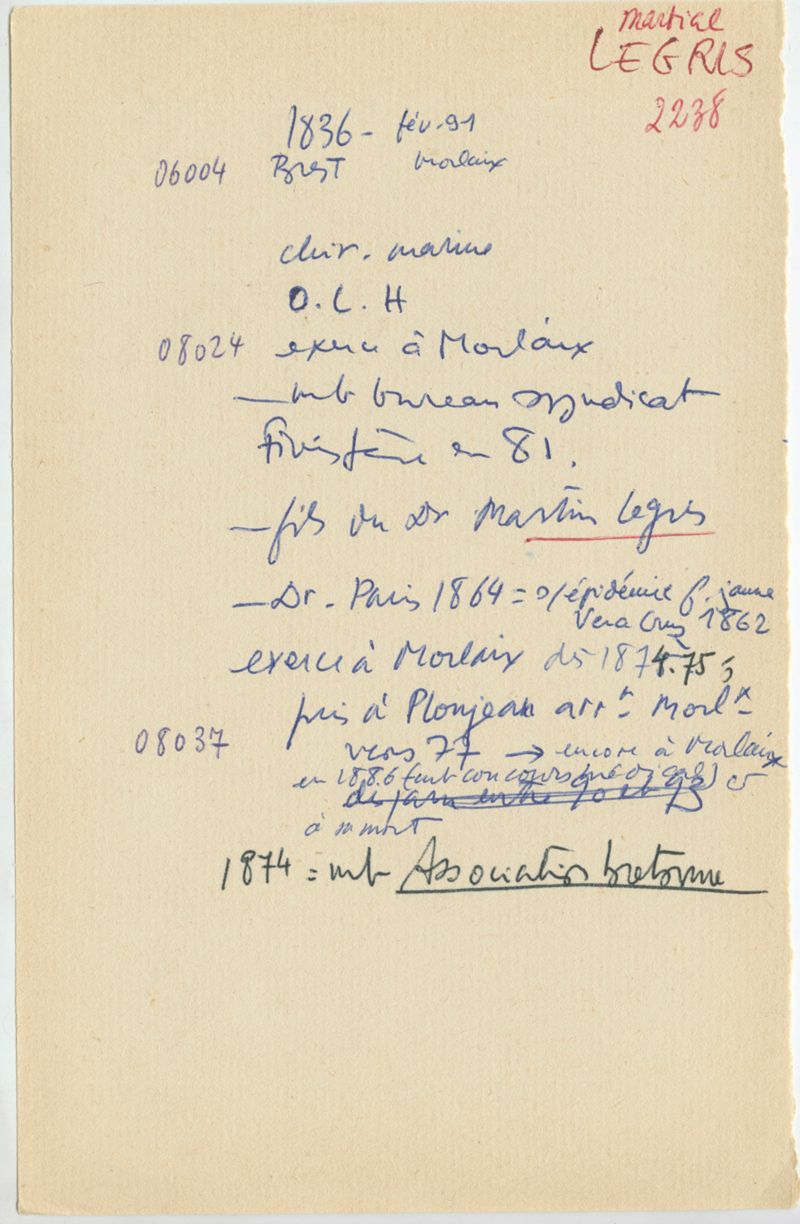 Martial
LEGRIS
2238
1836 - fév. 91
06004 Brest Morlaix
chir. marine
O.L.H
08024 exerce à Morlaix
— mb bureau syndicat
Finistère en 81.
— fils du Dr Martin Legris
— Dr. Paris 1864 = s/épidémie f. jaune
Vera Cruz 1862
exerce à Morlaix dès 1874.75 ;
puis à Ploujean arrt Morlx
08037 vers 77 → encore à Morlaix
en 1886 (ant concours médical) et
à sa mort
1874 = mb Association bretonne